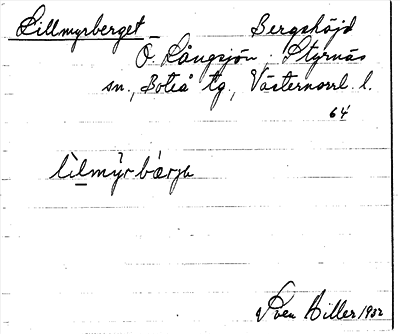 Lillmyrberget – Bergshöjd
Ö. Långsjön, Styrnäs
sn., Boteå tg., Västernorrl. l.
64
lìlmỳrbǽrjə
Sven Hiller 1932